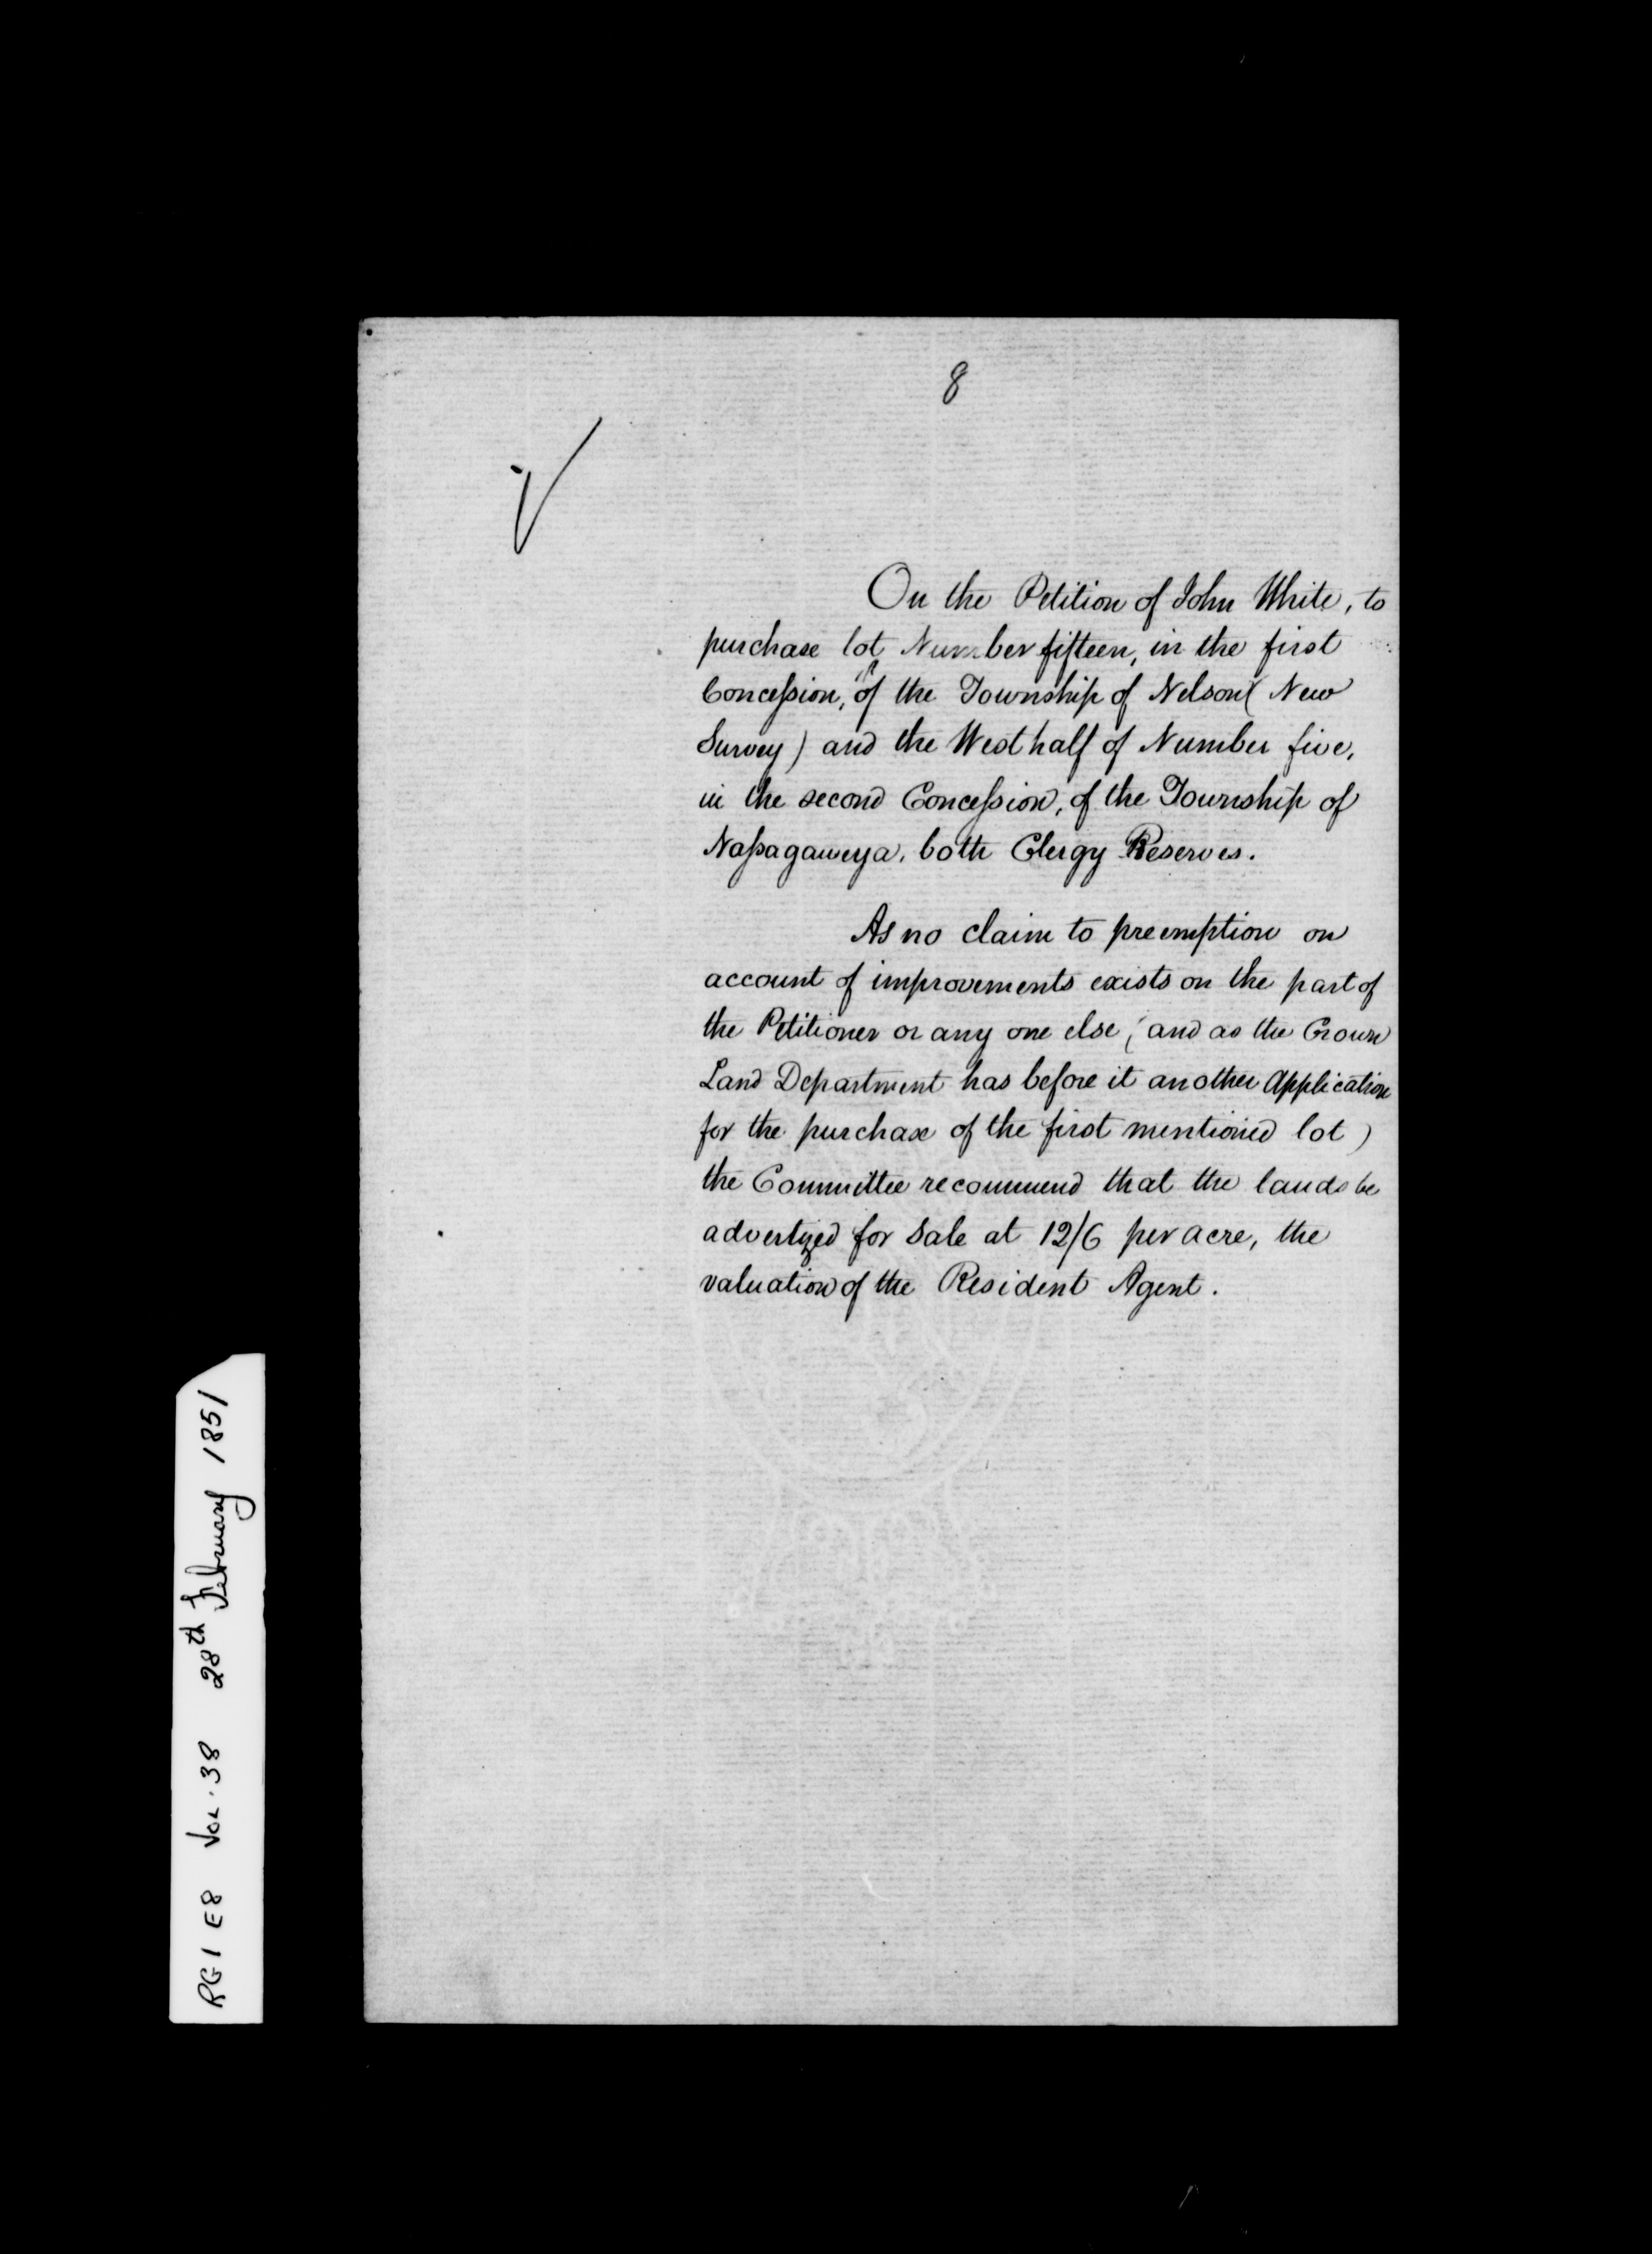 8
On the Petition of John White, to
purchase lot Number fifteen, in the first
Concession, of the Township of Nelson (New
Survey) and the West half of Number five,
in the second Concession, of the Township of
Nassagaweya, both Clergy Reserves.
As no claim to preemption on
account of improvements exists on the part of
the Petitioner or any one else, (and as the Crown
Land Department has before it another Application
for the purchase of the first mentioned lot)
the Committee recommend that the lands be
advertized for Sale at 12/6 per acre, the
valuation of the Resident Agent.
RG1 E8 VOL. 38 28th February 1851